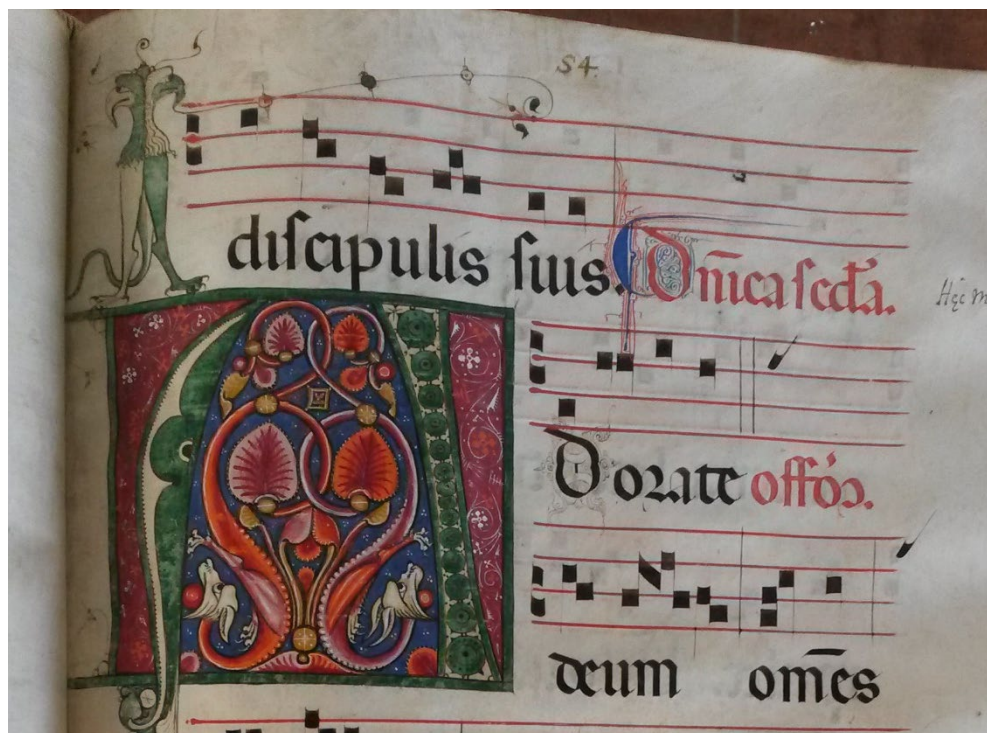 54.
diſcipulis ſuis. Dn̄ica ſecd̄a.
Hęc m
A Dorate offo᷒.
deum om̄es